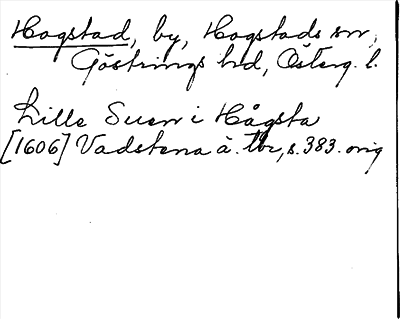 Hogstad, by, Hogstads sn,
Göstrings hd, Österg. l.
Lille Suen i Hågsta
[1606] Vadstena ä. tbr, s. 383. orig